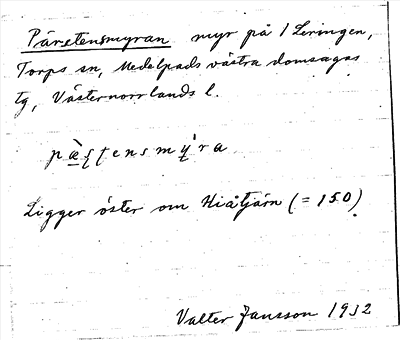 Päretensmyran myr på 1 Leringen,
Torps sn, Medelpads västra domsagas
tg, Västernorrlands l.
pæ̀ʃtensmy̌ra
Ligger öster om Hiåtjärn (= 150).
Valter Jansson 1932